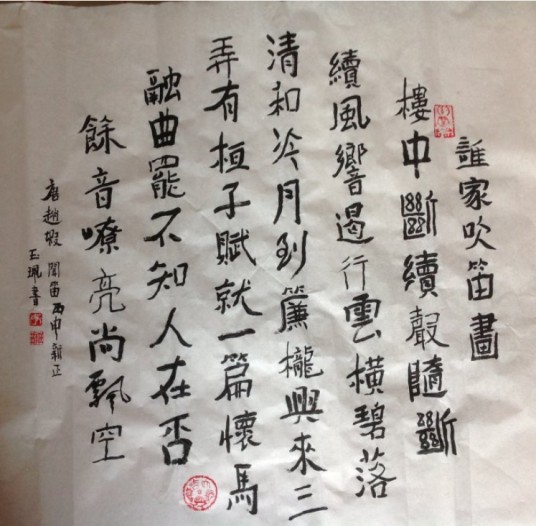 誰家吹笛畫
樓中斷續聲隨斷
續風響遏行雲橫碧落
清和冷月到簾櫳興來三
弄有桓子賦就一篇懷馬
融曲罷不知人在否
餘音嘹亮尚飄空
唐趙嘏 聞笛 丙申新正
玉珮書